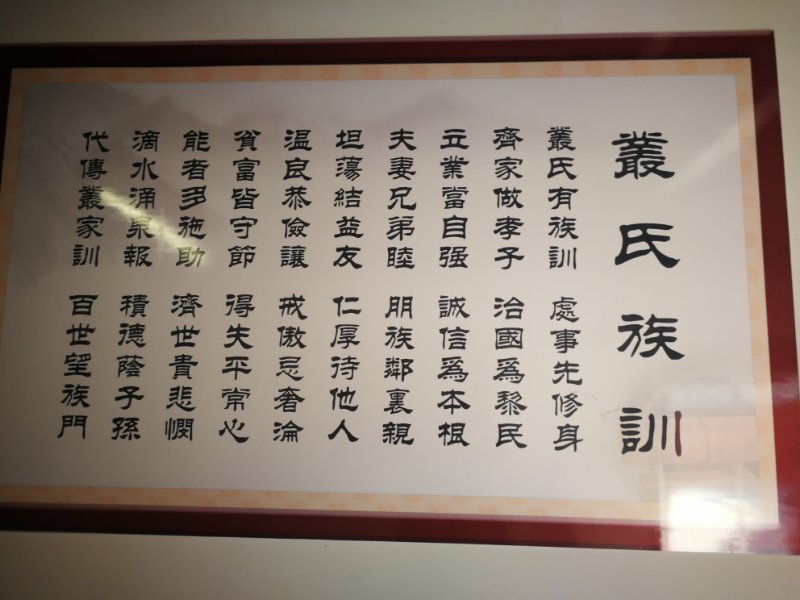 叢氏族訓
叢氏有族訓 處事先修身
齊家做孝子 治國爲黎民
立業當自强 誠信爲本根
夫妻兄弟睦 朋族鄰裏親
坦蕩結益友 仁厚待他人
温良恭儉讓 戒傲忌奢淪
貧富皆守節 得失平常心
能者多施助 濟世貴悲憫
滴水涌泉報 積德蔭子孫
代傳叢家訓 百世望族門